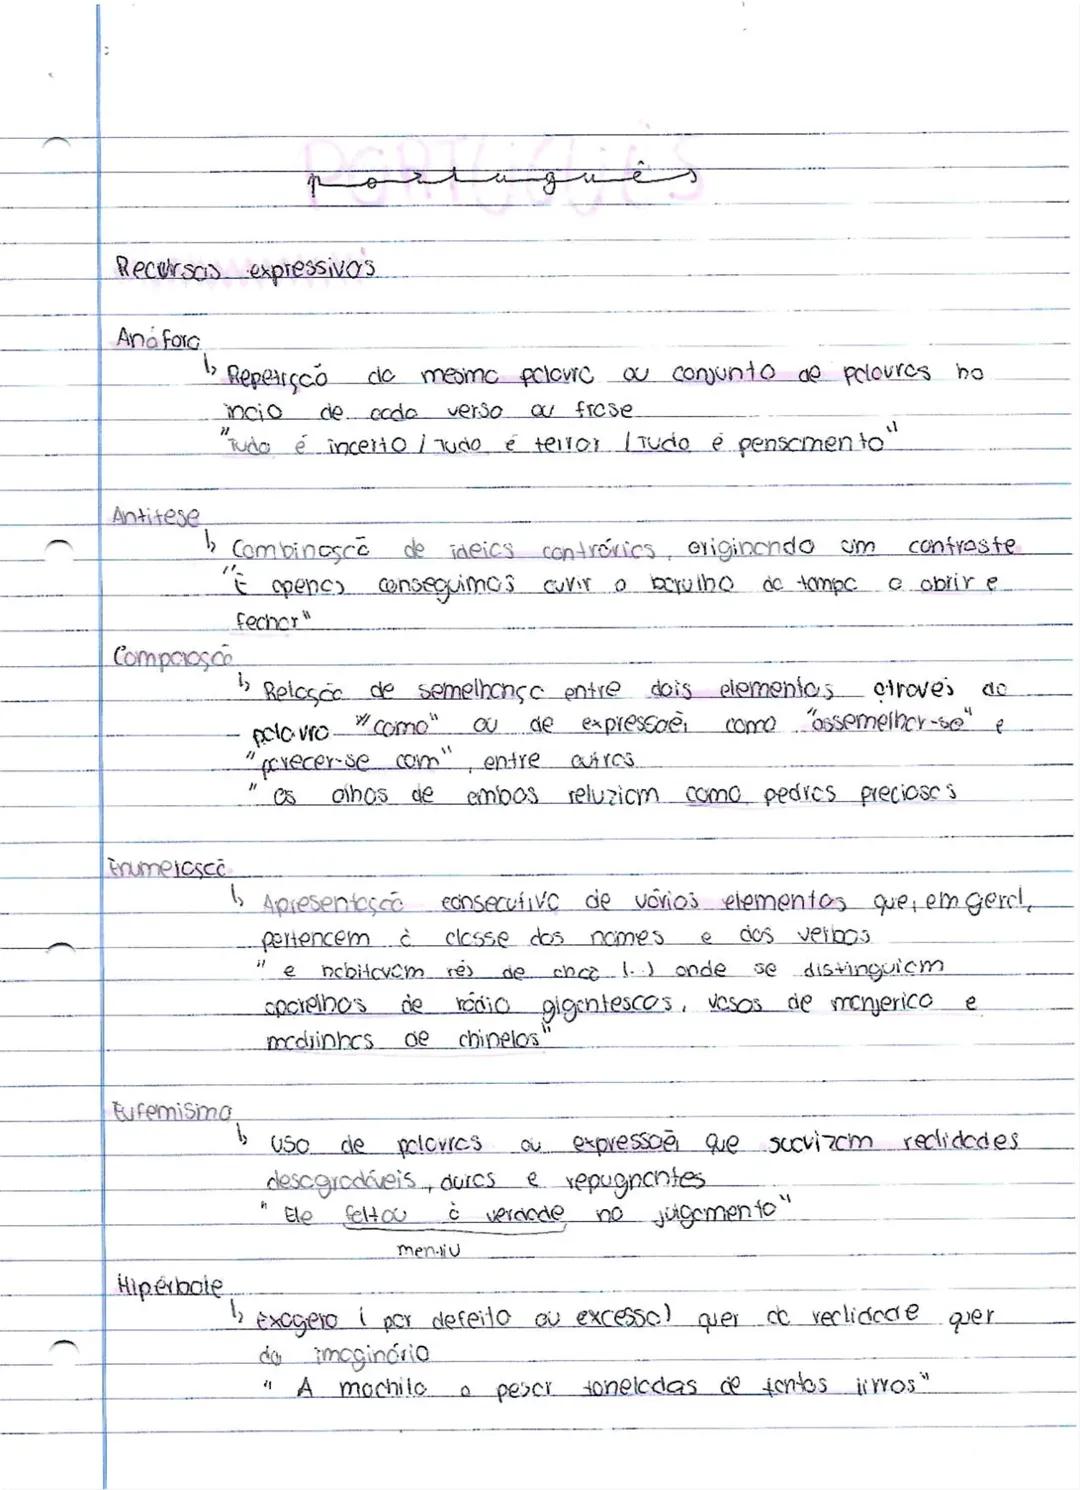 português
Recursos expressivos
Anáfora
↳ Repetição da mesma palavra ou conjunto de palavras no
ínicio de cada verso ou frase
"Tudo é incerto / Tudo é terror / Tudo é pensamento"
Antítese
↳ Combinação de ideias contrárias, originando um contraste
"E apenas conseguimos ouvir o barulho da tampa a abrir e
fechar"
Comparação
↳ Relação de semelhança entre dois elementos através da
palavra "como" ou de expressões como "assemelhar-se" e
"parecer-se com", entre outras
"os olhos de ambos reluziam como pedras preciosas
Enumeração
↳ Apresentação consecutiva de vários elementos que, em geral,
pertencem à classe dos nomes e dos verbos
"e habitavam rés de chão (..) onde se distinguiam
aparelhos de rádio gigantescos, vasos de manjerico e
madrinhas de chinelos"
Eufemismo
↳ Uso de palavras ou expressões que suavizam realidades
desagradáveis, duras e repugnantes
"Ele faltou à verdade no julgamento"
mentiu
Hipérbole
↳ Exagero (por defeito ou excesso) quer da realidade quer
do imaginário
"A mochila a pesar toneladas de tantos livros"